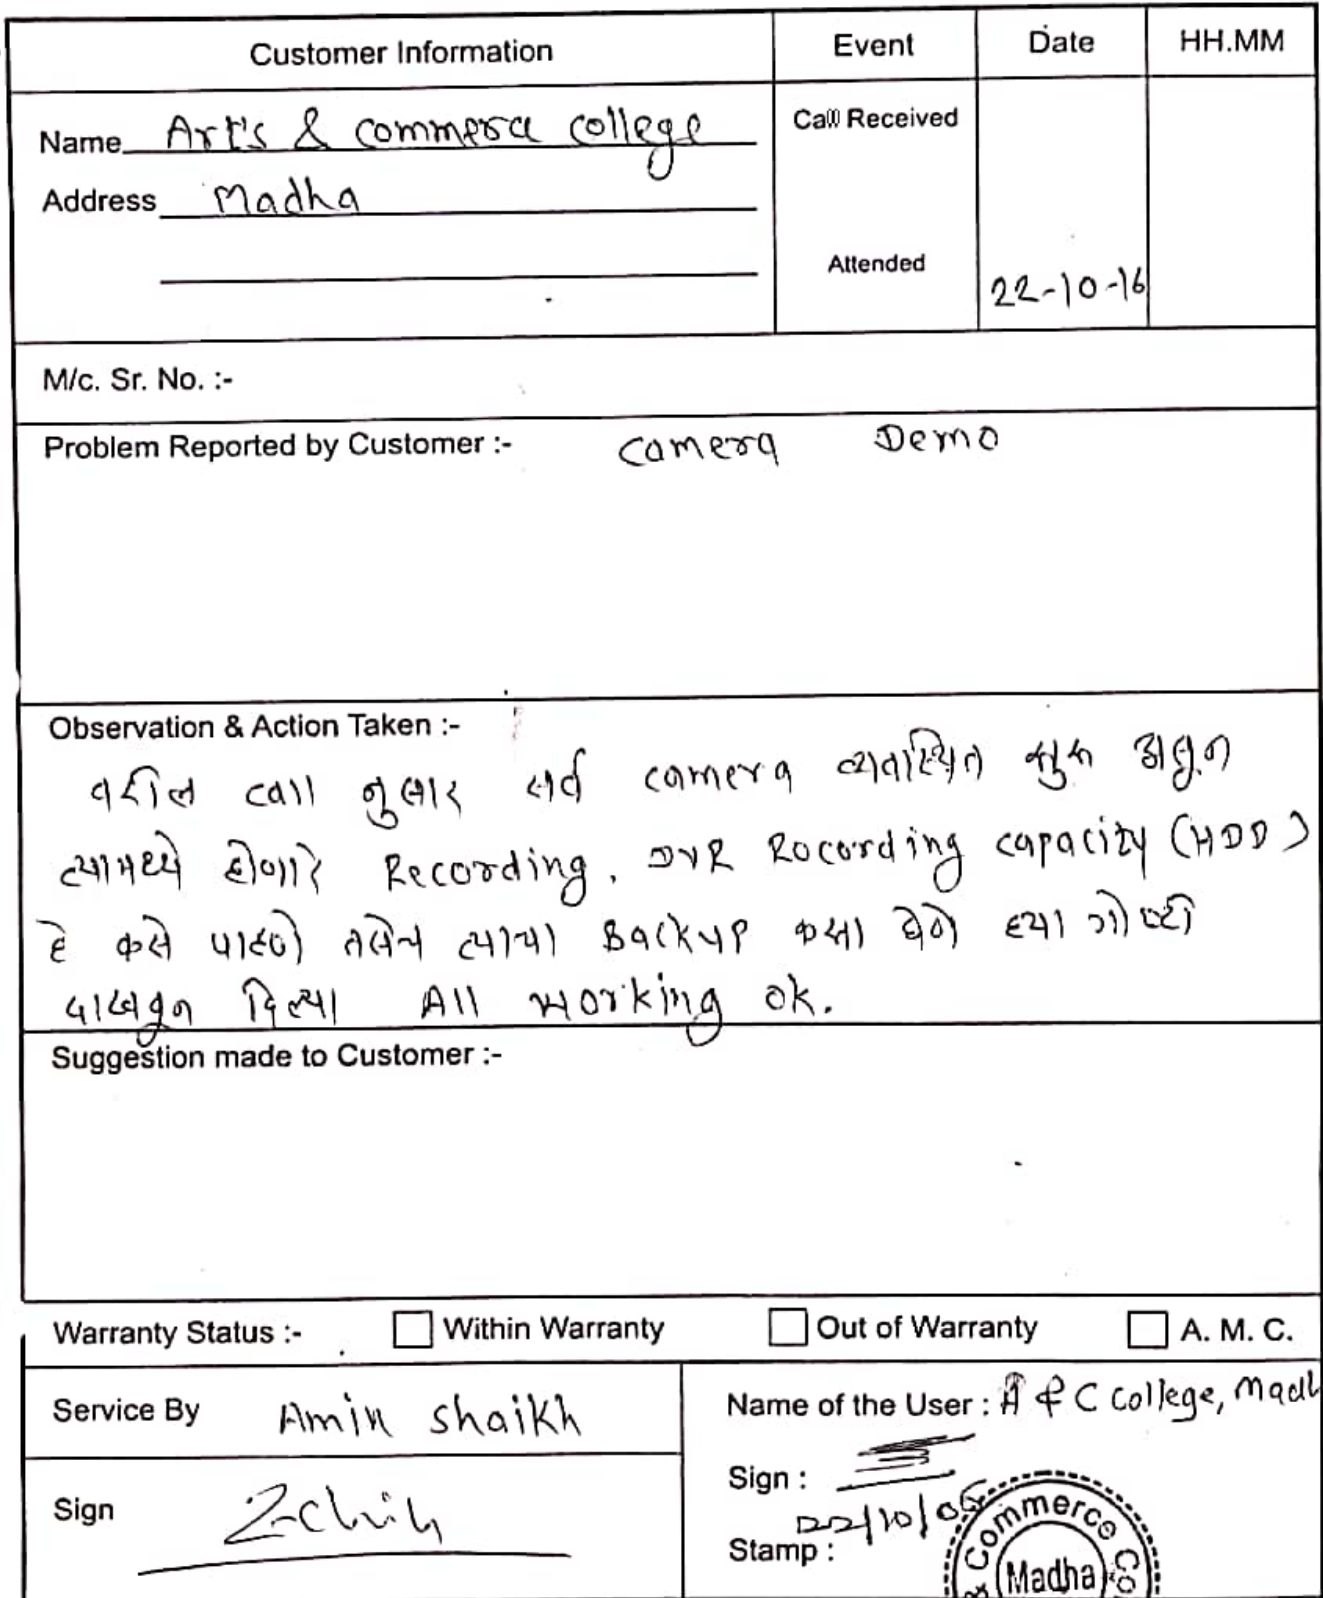 Customer Information Event Date HH.MM
Name Art's & commerce college Call Received
Address Madha
Attended 22-10-16
M/c. Sr. No. :-
Problem Reported by Customer :- Camera Demo
Observation & Action Taken :-
वरील call नुसार सर्व camera व्यवस्थित सुरू असून
त्यामध्ये होणारे Recording, DVR Rocording capacity (HDD)
हे कसे पाहणे तसेच त्याचा Backup कसा घेणे ह्या गोष्टी
दाखवून दिल्या All working ok.
Suggestion made to Customer :-
Warranty Status :- Within Warranty Out of Warranty A. M. C.
Service By Amin Shaikh
Name of the User : A & C College, Madh
Sign
Sign :
22/10/
Stamp :
& Commerce Co
Madha